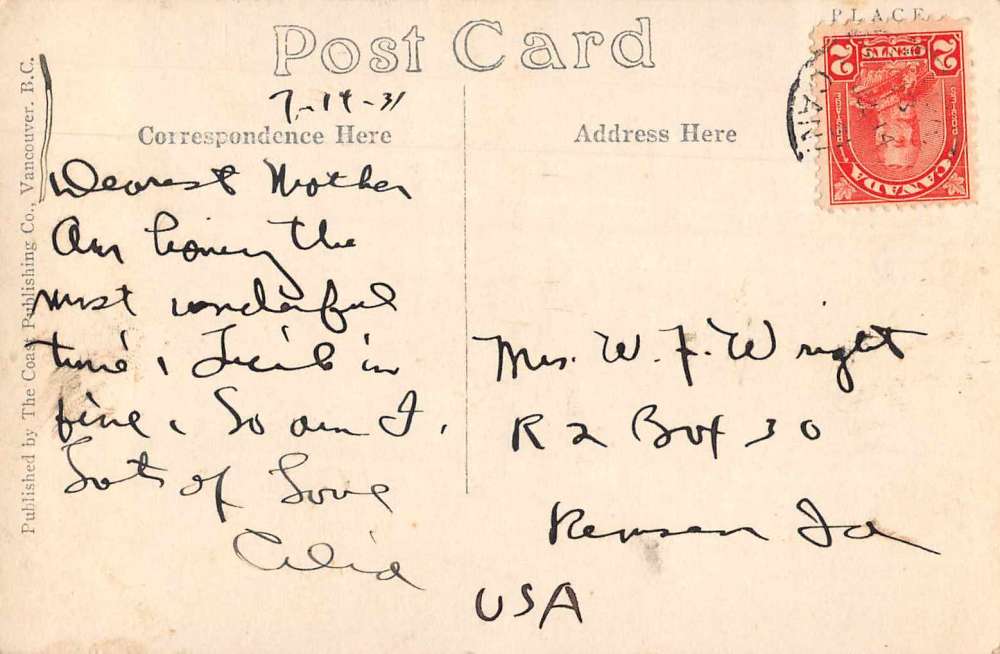 Post Card
PLACE
7-14-31
Correspondence Here
Address Here
Published by The Coast Publishing Co., Vancouver. B.C.
2 CENTS 2
CANADA
CAN
Dearest Mother
Am having the
most wonderful
time, is
fine, So am I,
Lots of Love
Celia
Mrs. W. F. Wright
R 2 Box 30
Remsen Ia
USA